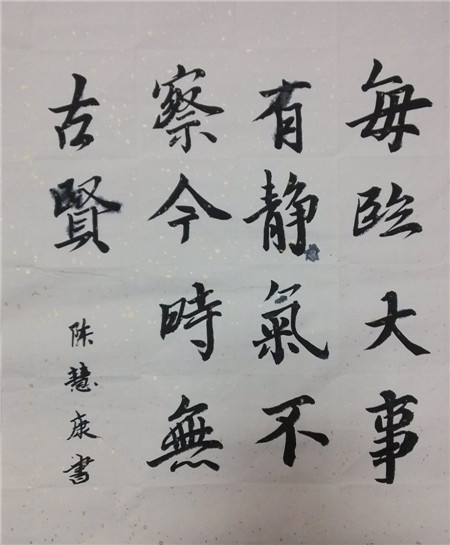 每臨大事
有静氣不
察今時無
古賢
陈慧康書